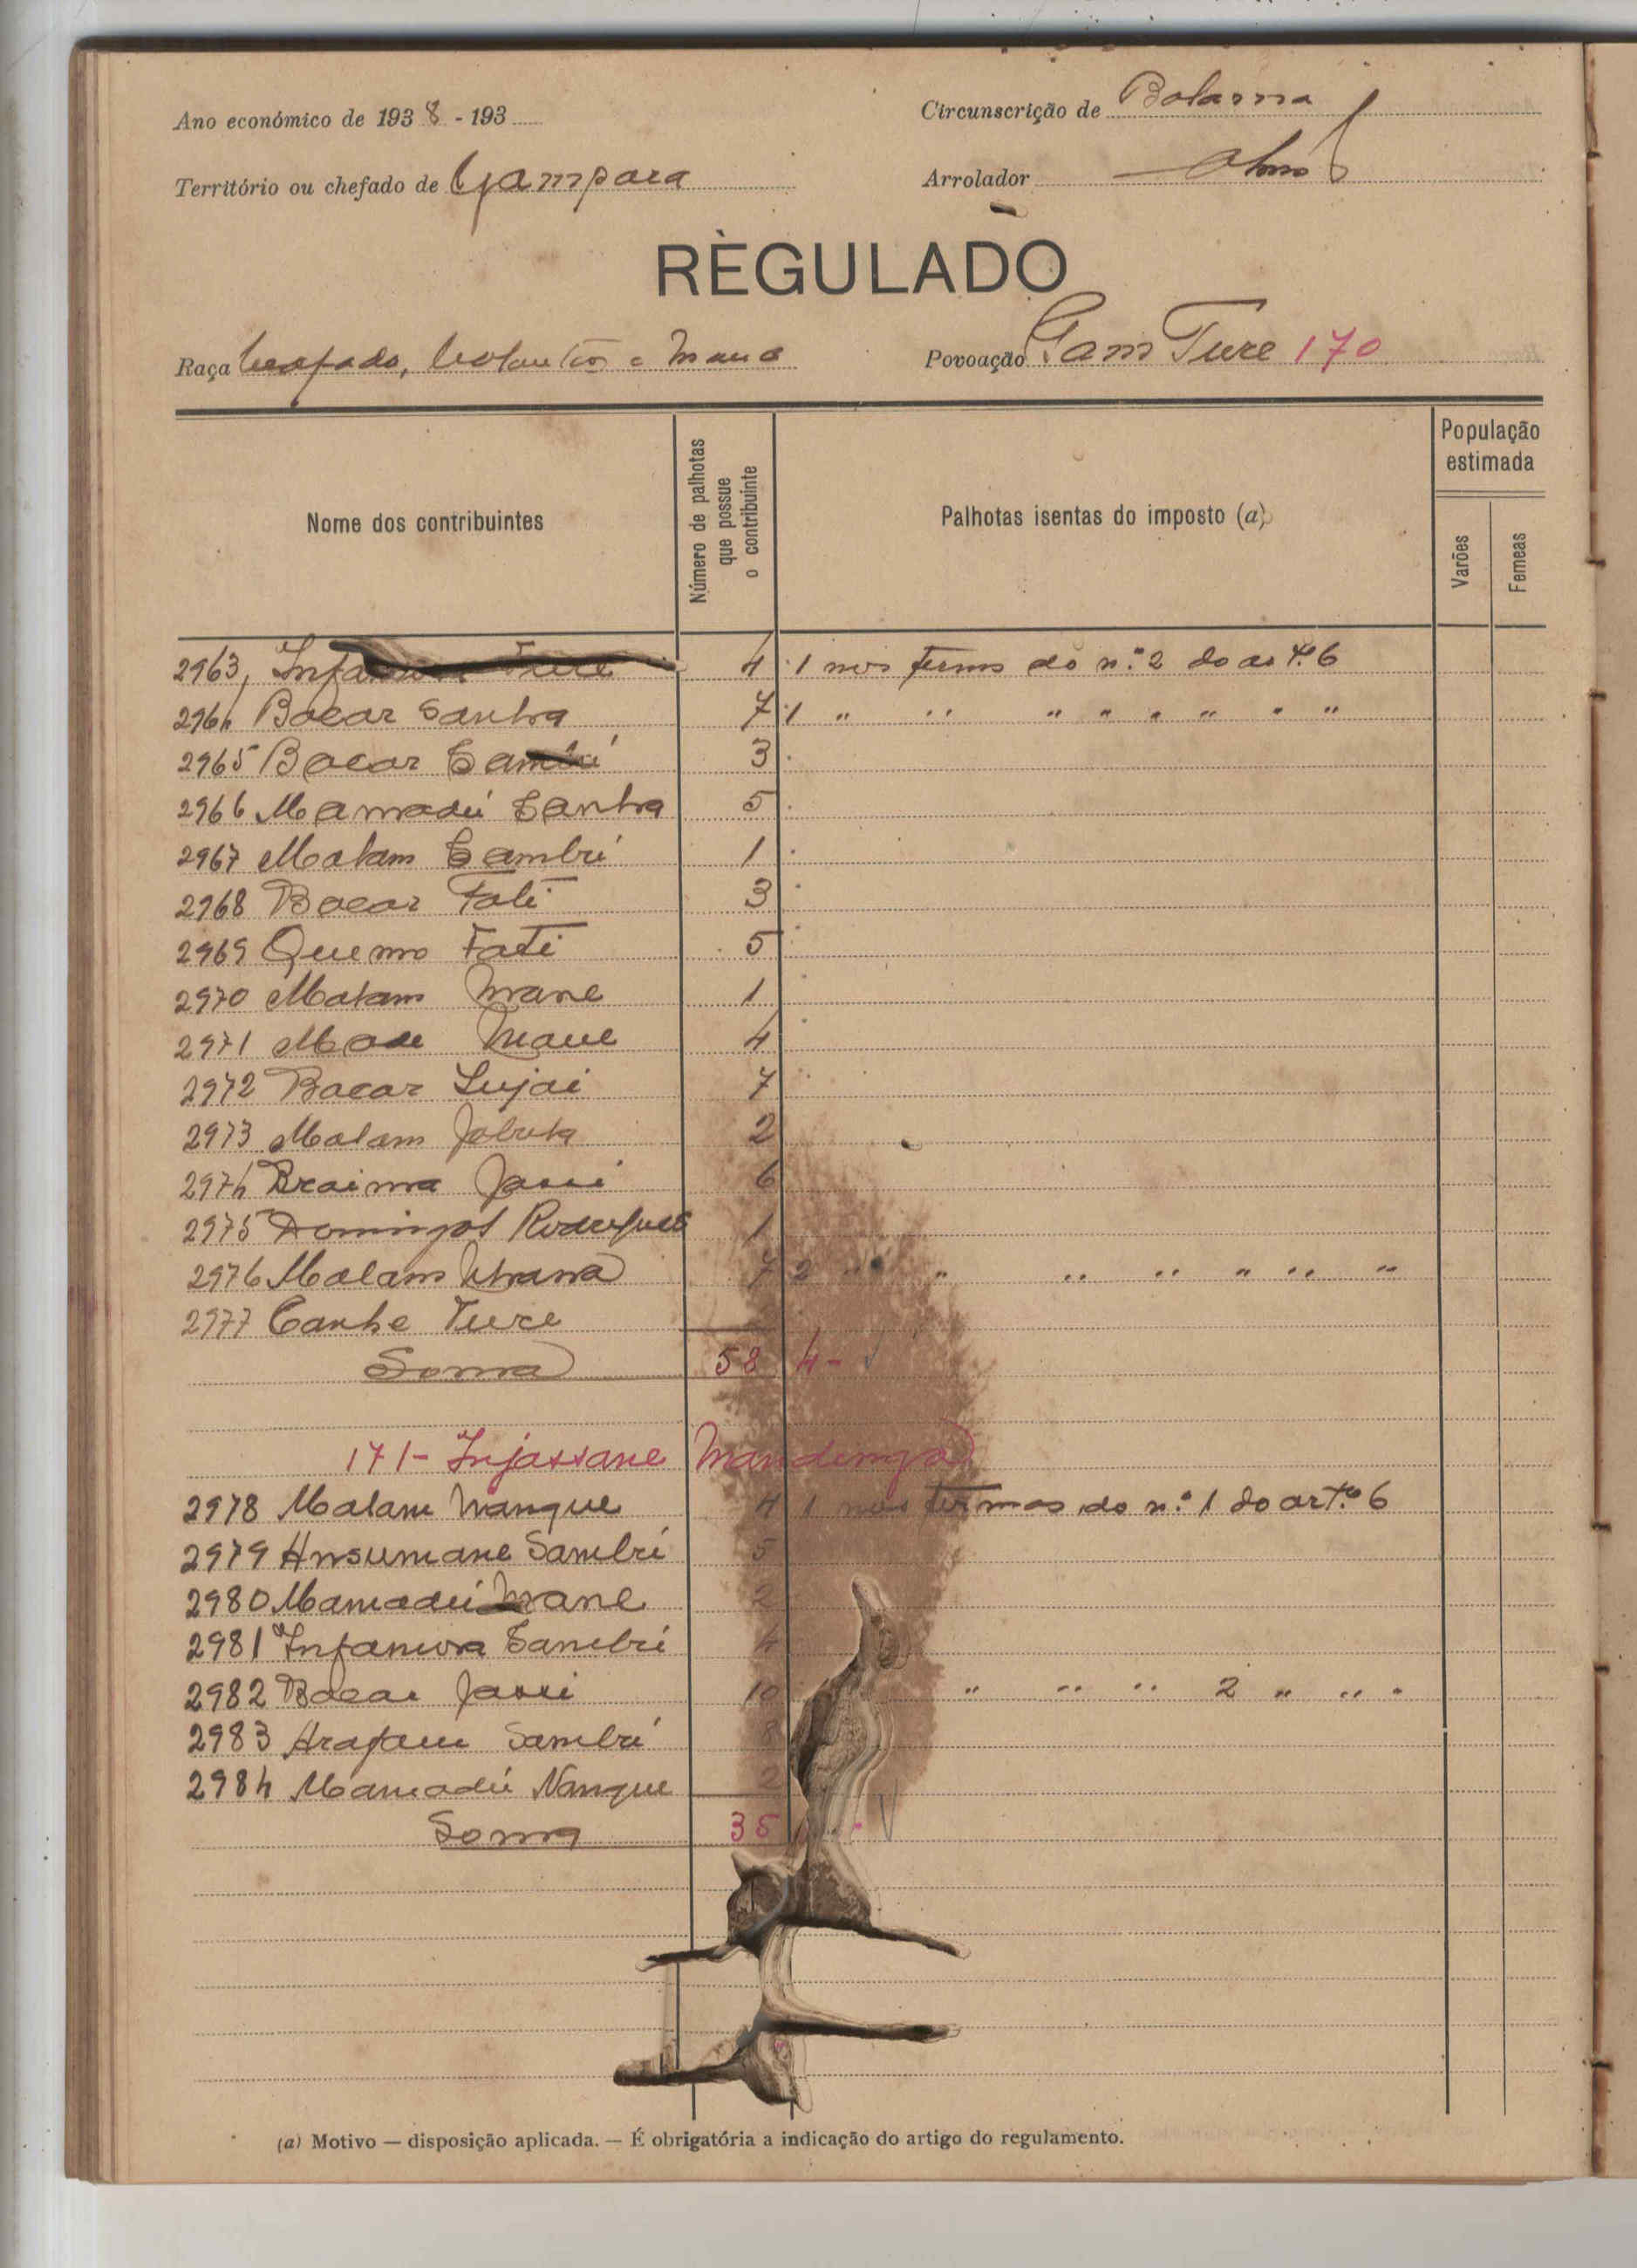 Ano económico de 1938 - 193
Circunscrição de Bolama
Território ou chefado de Gampara
Arrolador
RÈGULADO
Raça Beafada, e
Povoação Gam Ture 170
Nome dos contribuintes
Número de palhotas que possue o contribuinte
Palhotas isentas do imposto (a)
População estimada
Varões
Femeas
2963, Infa Ture 4 1 nos termos do n.º 2 do artº. 6
2964 Bacar Sanha 7 1 " " " " " " " "
2965 Bacar 3
2966 Mamadú Sanha 5
2967 Malam Sambú 1
2968 Bacar Fati 3
2969 Quemo Fati 5
2970 Malam Mane 1
2971 Mane 4
2972 Bacar 7
2973 Malam 2
2974 Braima Jassi 6
2975 Domingos Rodrigues 1
2976 Malam 7 2 " " " " " " "
2977 Ture
Soma 58 4-
171- Injassane Mandinga
2978 Malam Nanque 4 1 nos termos do n.º 1 do artº. 6
2979 Ansumane Sambú 5
2980 Mamadú Mane 2
2981 Infamara Sambú 4
2982 Bacar Jassi 10 " " " 2 " " "
2983 Arafam Sambú 8
2984 Mamadú Nanque 2
Soma 35
(a) Motivo — disposição aplicada. — É obrigatória a indicação do artigo do regulamento.